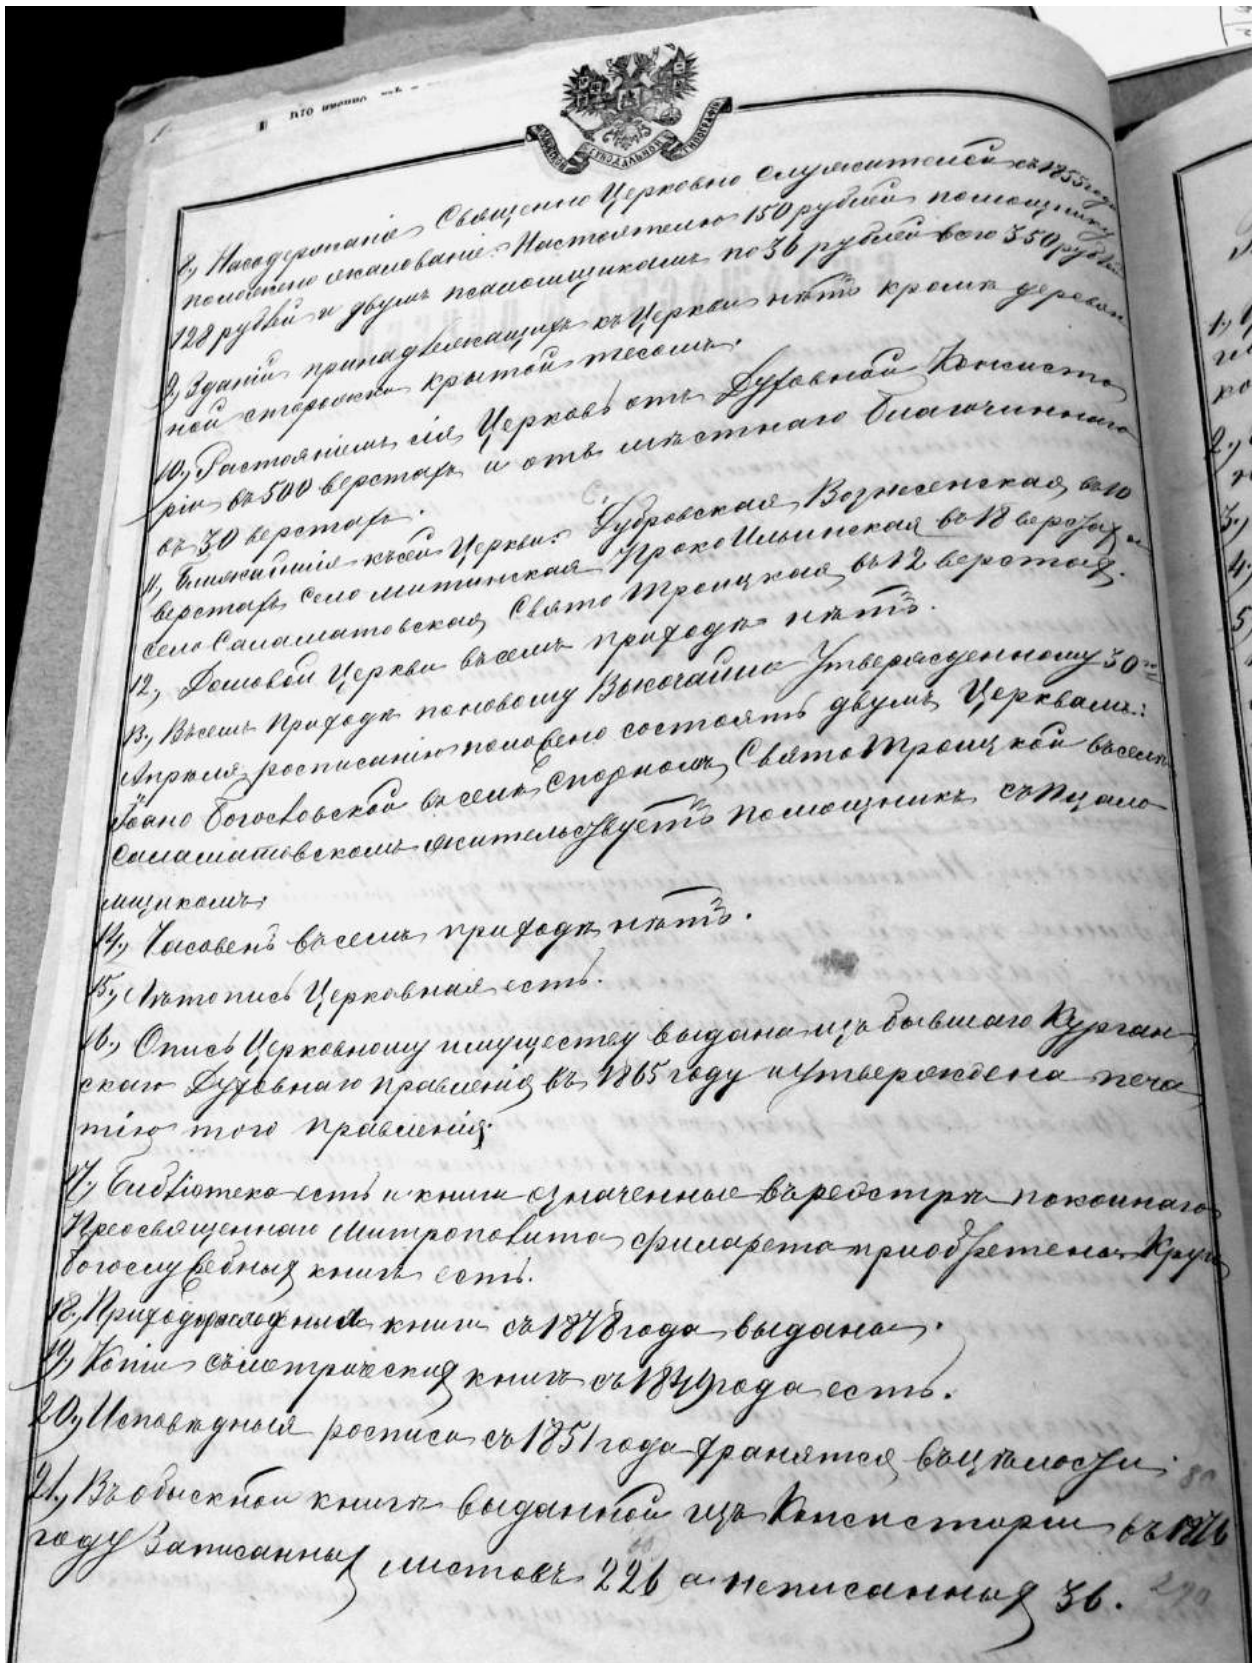 8, На содержаніе Священно Церковно служителей съ 1855 года
положено жалованіе: Настоятелю 150 рублей помощнику
128 рублей и двумъ псаломщикамъ по 36 рублей всего 350 рублей
9, Зданій принадлежащихъ къ Церкви нѣтъ кромѣ деревян
ной сторожки крытой тесомъ.
10, Растояніемъ сія Церковь отъ Духовной Консисто
ріи въ 500 верстахъ и отъ мѣстнаго благочиннаго
въ 30 верстахъ.
11, Ближайшія къ сей Церкви: Дубровская Вознесенская, въ 10
верстахъ село Митинская Проко Ильинская въ 18 верстахъ и
село Саламатовская, Свято Троицкая, въ 12 верстах.
12, Домовой Церкви въ семъ приходѣ нѣтъ.
13, Въ семъ Приходѣ по новому Высочайше Утвержденному 30го
Апрѣля росписанію положено состоять двумъ Церквамъ:
Іоано Богословской въ селѣ Спорномъ, Свято Троицкой въ селѣ
Саламатовскомъ жительствуетъ помощникъ съ Псало
мщикомъ.
14, Часовенъ въ семъ приходѣ нѣтъ.
15, Лѣтопись Церковная есть.
16, Опись Церковному имуществу выдана изъ бывшаго Курган
скаго Духовнаго Правленія, въ 1865 году и утверждена печа
тію того правленія.
17, Библіотека есть и книги означенные въ реэстрѣ покоинаго
Преосвященнаго Митрополита Филарета приобретены. Кругъ
богослужебных книгъ есть.
18, Приходорасходныя книги съ 1878 года выданы.
19, Копіи съ метрических книгъ съ 1849 года есть.
20, Исповѣдныя росписи съ 1851 года хранятся въ цѣлости.
21, Въ обыскной книгѣ выданной изъ Консисторіи въ 1876
году Записанных листовъ 226 а неписанных 36.